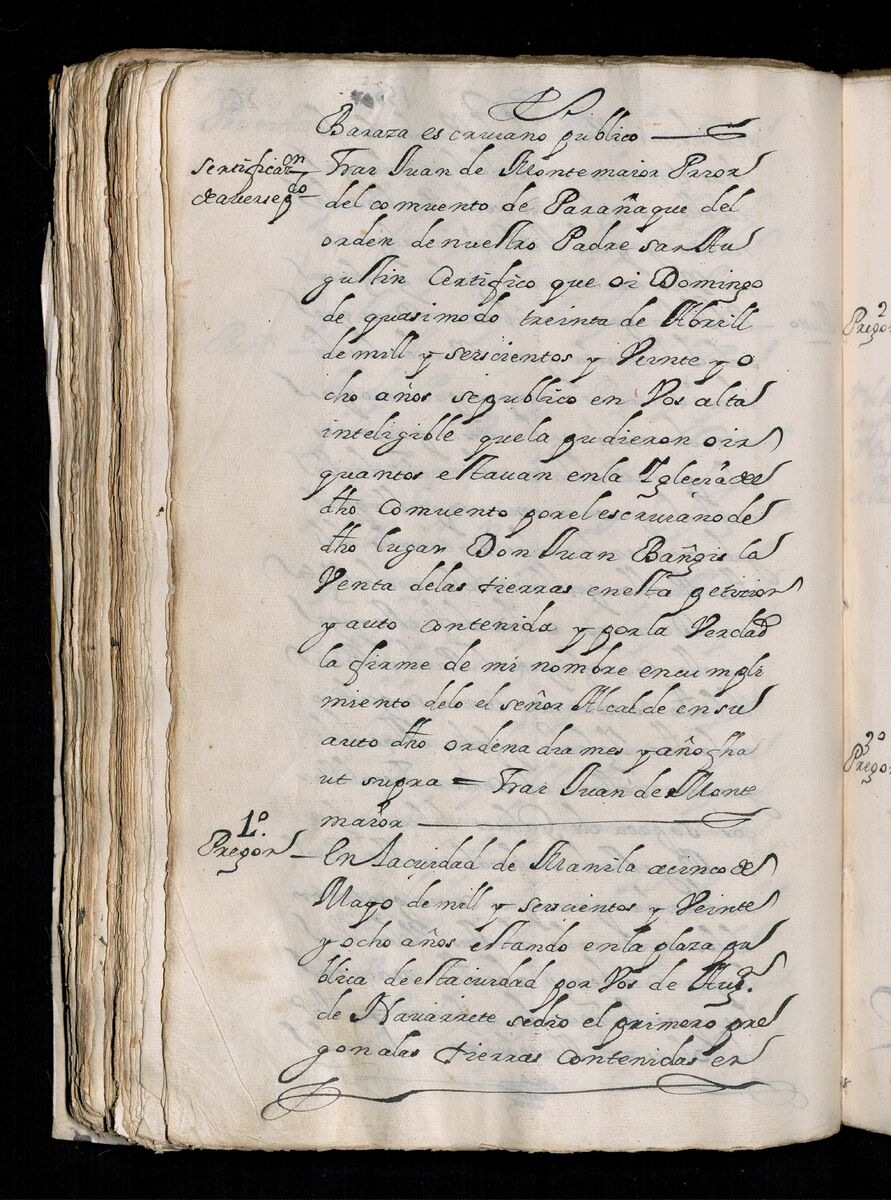 Baraza escruiano publico
sertificaon
de aversepco
Frai Juan de Montemaior Prior
del comvento de Parañaque del
orden de nuestro Padre san Au
gustin Certifico que oi Domingo
de quasimodo treinta de Abrill
de mill y seiscientos y Veinte y o
cho años se publico en Vos alta
inteligible que la pudieron oir
quantos estavan en la Iglecia de
dho Comvento por el escruiano de
dho lugar Don Juan Bañgis la
Venta de las tierras en esta peticion
y auto contenida y por la Verdad
la firme de mi nombre en cumpli
miento de lo el señor Alcalde en su
auto dho ordena dia mes y año fha
ut supra = Frai Juan de Monte
maior
1º
Pregon
En la ciudad de Manila a cinco de
Mayo de mill y seiscientos y Veinte
y ocho años estando en la plaza pu
blica de esta ciudad por Vos de
de Navarrete se dio el primero pre
gon a las tierras contenidas en
2
Pregon
3º
Pregon